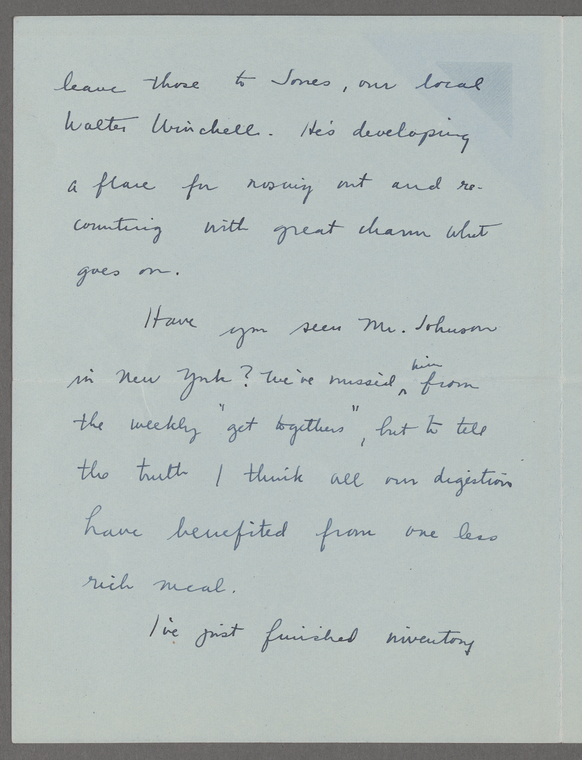 leave those to Jones, our local
Walter Winchell. He's developing
a flare for nosing out and re-
counting with great charm what
goes on.
Have you seen Mr. Johnson
in New York? We've missed ^him from
the weekly "get togethers", but to tell
the truth I think all our digestions
have benefited from one less
rich meal.
I've just finished inventory